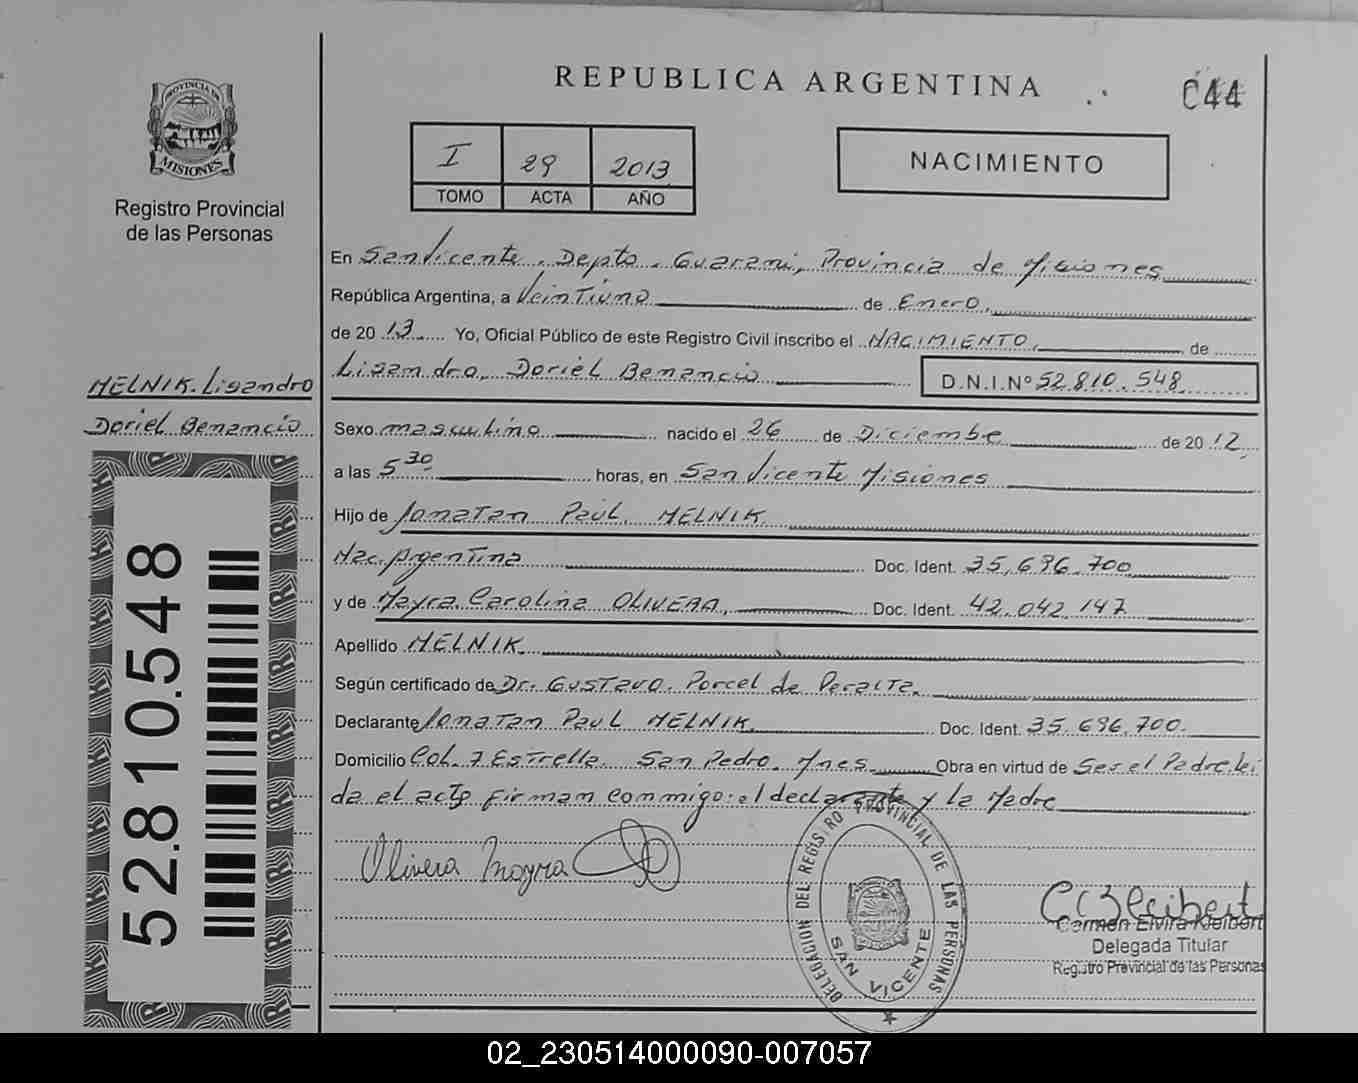 REPUBLICA ARGENTINA
C44
PROVINCIA DE
MISIONES
Registro Provincial
de las Personas
I 29 2013
TOMO ACTA AÑO
NACIMIENTO
En San Vicente, Depto. Guarani, Provincia de Misiones
República Argentina, a Veintiuno de Enero,
de 2013 Yo, Oficial Público de este Registro Civil inscribo el NACIMIENTO, de
Lisandro, Doriel Benancio D.N.I.Nº 52.810.548
MELNIK. Lisandro
Doriel Benancio
Sexo masculino nacido el 26 de Diciembre de 2012.
a las 5 30 horas, en San Vicente Misiones
Hijo de Jonatan Paul. MELNIK.
Nac. Argentina Doc. Ident. 35.696.700
y de Mayra Carolina OLIVERA, Doc. Ident. 42.042.147
Apellido MELNIK.
Según certificado de Dr. Gustavo. Porcel de Peralta.
Declarante Jonatan Paul MELNIK. Doc. Ident. 35.696.700.
Domicilio Col. 7 Estrella. San Pedro. Mnes. Obra en virtud de Ser el Padre. Leí
da el acta firman conmigo: el declarante y la Madre
52.810.548
Olivera Mayra
DELEGACION DEL REGISTRO PROVINCIAL DE LAS PERSONAS
SAN VICENTE
C E Kleibert
Carmen Elvira Kleibert
Delegada Titular
Registro Provincial de las Personas
02_230514000090-007057